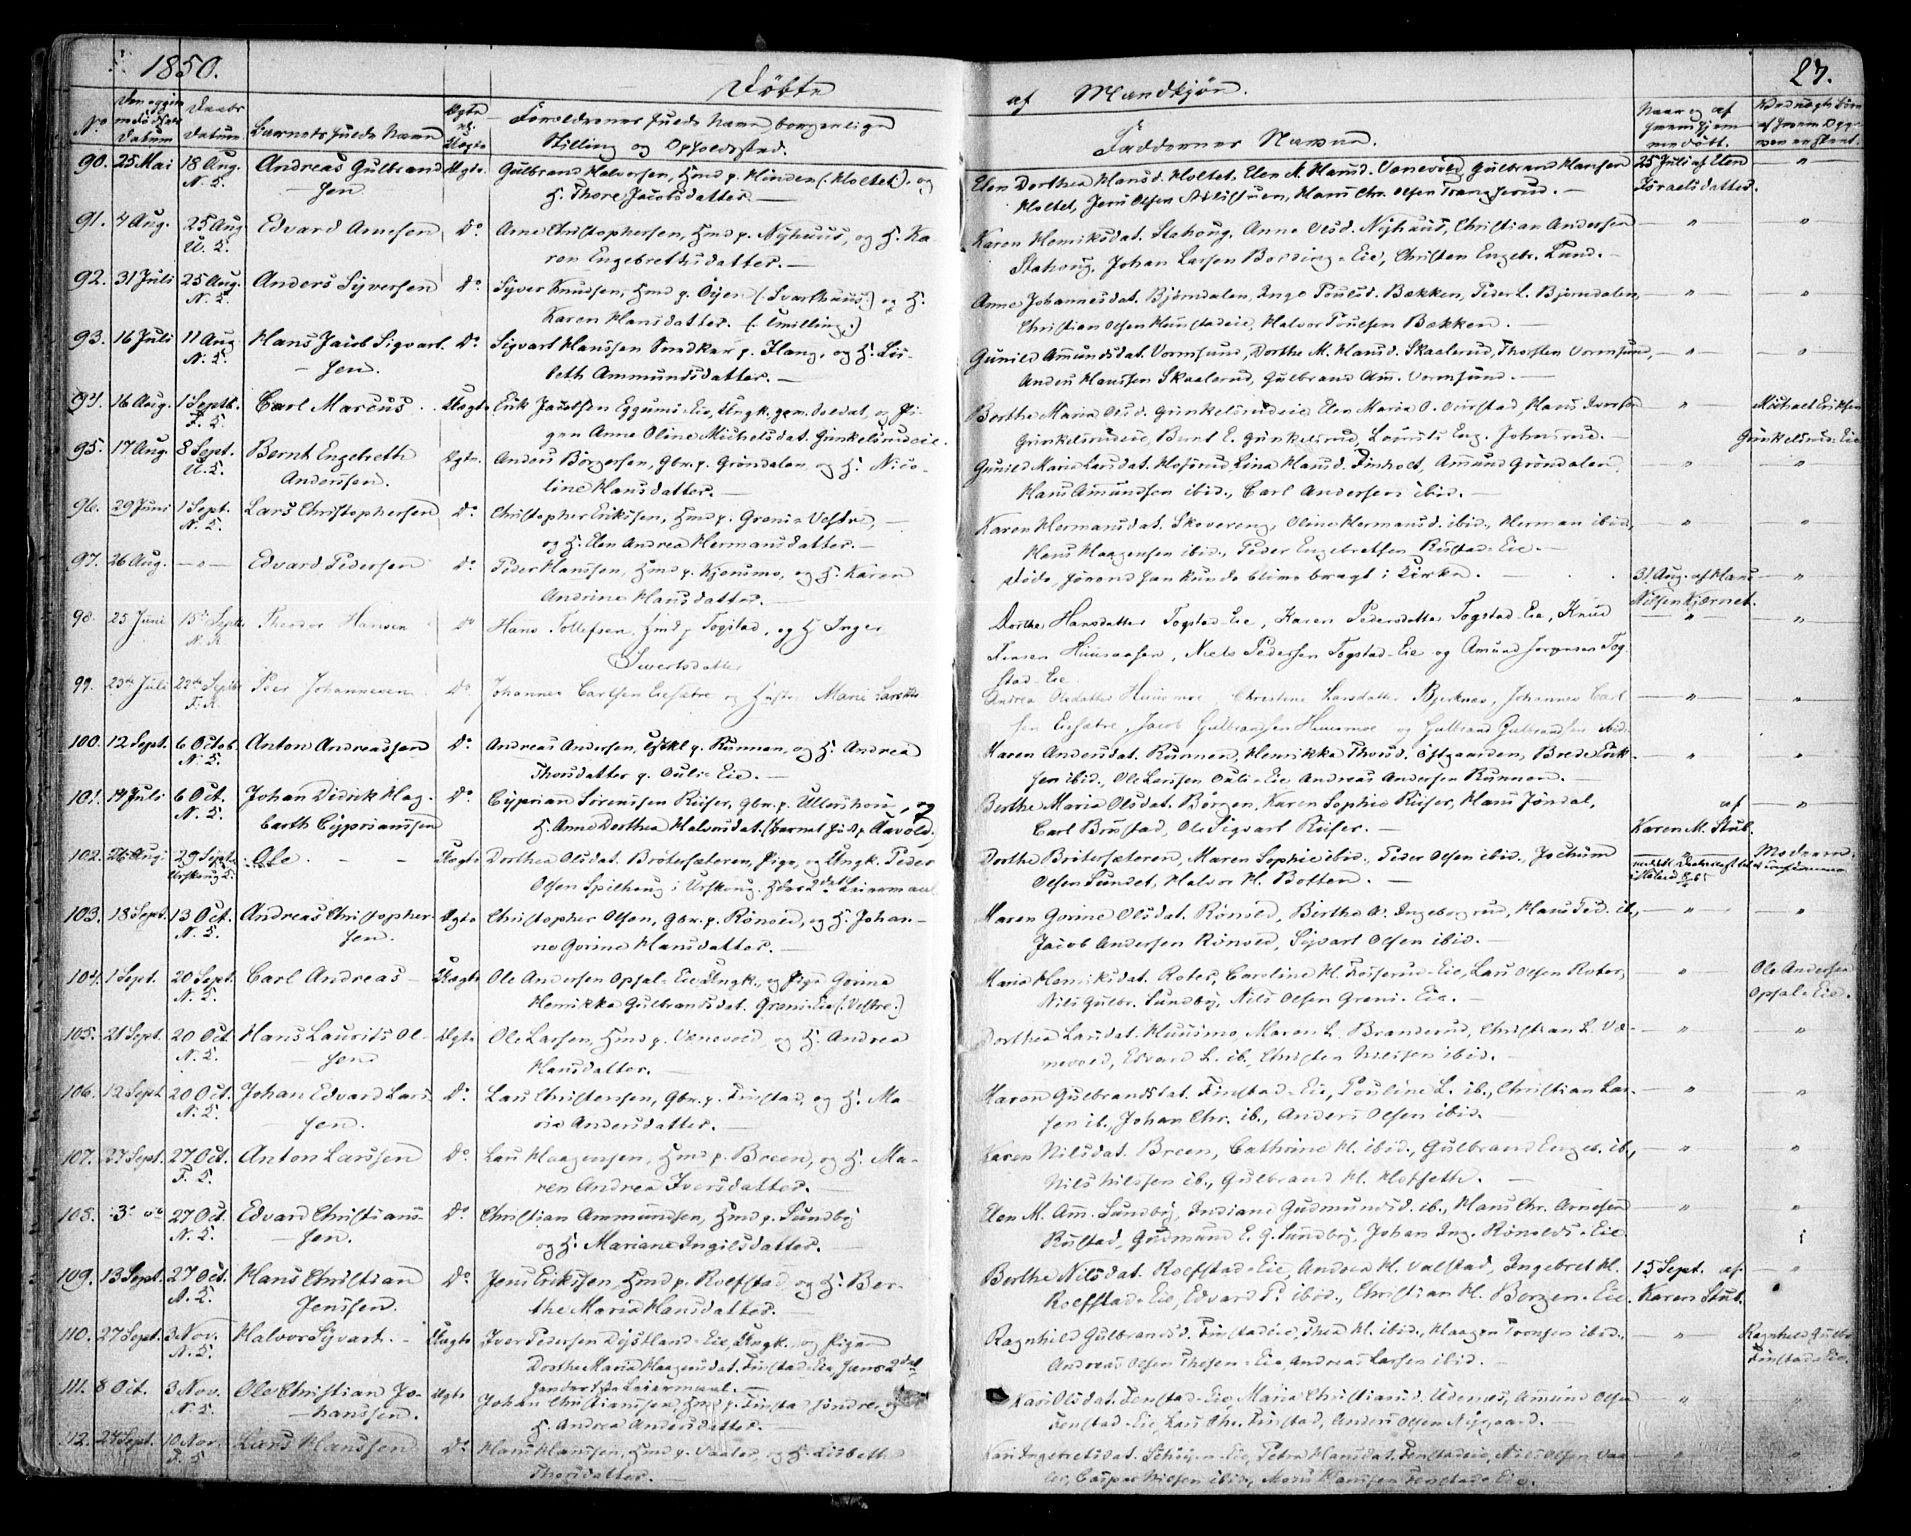 1850.
Døbte
af Mandkjøn.
27.
No
Datum
Datum
Barnets fulde Navn
Ægte el. Uægte
Forældrenes fulde Navne, borgerlige
Stilling og Opholdssted.
Faddernes Navne.
90. 25 Mai 18 Aug. Andreas Gulbrand Ægte. Gulbrand Halvorsen, Hmd p. (Holtet), og
N. K. sen H. Thore Jacobsdatter. —
Elen Dorthea Hansd. Holtet, Elen M. Hansd. Vænevold, Gulbrand Hansen 25 Juli af Elen "
Holtet, Jens Olsen Hans Chr. Olsen — Israelsdatter.
91. 4 Aug. 25 Aug Edvard Arnesen Do Arne Christophersen, Hmd p. Nyhuus, og H. Ka-
ren Engebretsdatter. —
Karen Henriksdat. Anne Olsd. Nyhuus, Christian Andersen " "
Johan Larsen Eie, Christen Engebr. Lund. —
92. 31 Juli 25 Aug. Anders Syversen Do Syver Knudsen, Hmd p. Øyen (Svarthuus) og H.
N. K. Karen Hansdatter. (Tvilling.)
Anne Johannesdat. Bjørndalen, Inge Poulsd. Bækken, Peder L. Bjørndalen, " "
Christian Olsen Halvor Poulsen Bækken. —
93. 16 Juli 11 Aug Hans Jacob Sigvart Do Sigvart Hanssen Snedker p. Haug, og H. Lis-
N. K. sen. beth Ammundsdatter. —
Gunild Amundsdat. Vormsund, Dorthe M. Hansd. Skaalerud, Thorsten Vormsund, " "
Anders Hanssen Skaalerud, Gulbrand Am. Vormsund. —
94. 16 Aug. 1 Septb. Carl Marcus. Uægte Erik Jacobsen Eggum-Eie, Ungk. gem. Soldat, og Pi-
gen Anne Oline Michelsdat. Gunkelsrudeie.
Berthe Maria Olsd. Gunkelsrudeie Elen Maria O. Hans Iversen " Michael Eriksen
Gunkelsrudeie, Bernt E. Gunkelsrud, Eng. Johnsrud. — Gunkelsrud-Eie
95. 17 Aug. 8 Sept. Bernt Engebreth Ægte. Anders Børgersen, Gbr. p. Grøndalen, og H. Nico-
Anderssen. line Hansdatter. —
Gunild Maria Larsdat. Lina Hansd. Finholt, Amund Grøndalen, " "
Hans Amundsen ibid., Carl Andersen ibid. —
96. 29 Juni 1 Sept. Lars Christophersen Do Christopher Erikssen, Hmd p. Greni-Vestre, —
N. K. og H. Elen Andrea Hermansdatter. —
Karen Hermansdat. Skovereng, Oline Hermansd. ibid., Herman ibid, " "
Hans Haagensen ibid., Peder Engebretsen Rustad-Eie. —
97. 26 Aug. — " — Edvard Pedersen Do Peder Hanssen, Hmd p. Kjønsmo, og H. Karen
Andrine Hansdatter. —
døde, førend han kunde blive bragt i Kirken. — 31 Aug. af Hans "
Nilsen Kjærnet.
98. 25 Juni 15de Septb Theodor Hansen Do Hans Tollefsen, Hmd p. Fogstad, og H. Inger
Sivertsdatter
Dorthe Hansdatter Fogstad-Eie, Karen Pedersdatter Fogstad-Eie, Knud " "
Niels Pedersen Fogstad-Eie og Amund Jørgensen Fog-
stad-Eie
99. 25de Juli 22de Septb Peer Johannesen Do Johannes Carlsen Eiesætre og Hustru Marie
Andrea Olsdatter Huusmoe Christine Larsdatter Bjerknes, Johannes Carl " "
sen Eiesætre, Jacob Gulbransen Huusmoe og Gulbrand Gulbrandsen ibid.
100. 12 Sept. 6 Octob. Anton Andreassen Do Andreas Andersen, p. Runnen, og H. Andrea
N. K. Thorsdatter p. Ouli-Eie. —
Maren Andersdat. Runnen, Henrikka Thorsd. Østgaarden, Brede Erik- " "
sen ibid., Ole Larssen Ouli-Eie Andreas Andersen Runnen. —
101. 14 Juli 6 Oct. Johan Didrik Hag- Do Cyprian Sørenssen Riiser, Gbr. p. Ullershou, og
N. K. barth Cyprianssen H. Anne Dorthea Halvorsdat. (Barnet født p. Aavold.)
Berthe Maria Olsdat. Børgen, Karen Sophie Riiser, Hans Jøndal, af "
Carl Brustad, Ole Sigvart Riiser. — Karen M. Stub.
102. 26 Aug 29 Septb Ole. — — Uægte Dorthea Olsdat. Brøtersæteren, Pige, og Ungk. Peder
Urskoug K. Olsen Spilhoug i Urskoug. Leiermaal.
Dorthe Brøtersæteren, Maren Sophie ibid., Peder Olsen ibid., Jochum Moderen
Olsen Sundet, Halvor H. Botten.
103. 18 Sept. 13 Oct. Andreas Christopher- Ægte Christopher Olsen, Gbr. p. Rønold, og H. Johan-
N. K. sen. ne Gorine Hansdatter. —
Maren Gorine Olsdat. Rønold, Berthe A. Ingebogrud, Hans Ped. ib, " "
Jacob Andersen Rønold, Syvart Olsen ibid. —
104. 1 Sept. 20 Sept. Carl Andreas — Uægte Ole Andersen Opsal-Eie Ungk., og Pige Gorine
N. K. Henrikka Gulbransdat. Greni-Eie (Vestre.)
Maria Henriksdat. Roter, Caroline H. Lars Olsen Roter, " Ole Andersen
Nils Gulbr. Sundby, Nils Olsen Greni-Eie. — Opsal-Eie.
105. 21 Sept. 20 Oct. Hans Laurits Ol- Ægte Ole Larsen, Hmd p. Vænevold, og H. Andrea
N. K. sen Hansdatter. —
Dorthea Larsdat. Huusmo, Maren L. Branderud, Christian L. Væ- " "
nevold, Edvard L. ib., Christen Nilssen ibid. —
106. 12 Sept 20 Oct. Johan Edvard Lars- Do Lars Christensen, Gbr. p. Finstad, og H. Ma-
N. K. sen. ria Andersdatter. —
Maren Gulbrandsdat. Finstad-Eie, Pouline L. ib., Christian Lar- " "
sen ib., Johan Chr. ib., Anders Olsen ibid. —
107. 27 Sept. 27 Oct. Anton Larssen Do Lars Haagensen, Hmd p. Breen, og H. Ma-
F. K. ren Andrea Iversdatter. —
Karen Nilsdat. Breen, Cathrine H. ibid., Gulbrand Engeb. ib., " "
Nils Nilssen ib., Gulbrand H. Hofseth. —
108. 3 do 27 Oct. Edvard Christians- Do Christian Ammundsen, Hmd p. Sundby
N. K. sen. og H. Mariane Ingilsdatter. —
Elen M. Am. Sundby, Indiane Gudmundsd. ib., Hans Chr. Arnesen " "
Rustad, Gudmund E. G. Sundby, Johan Ing. Rønolds-Eie.
109. 13 Sept. 27 Oct. Hans Christian Do Jens Erikssen, Hmd p. Rolfstad, og H. Ber-
N. K. Jenssen. the Maria Hansdatter. —
Berthe Nilsdat. Rolfstad-Eie, Andrea H. Valstad, Ingebret H. 15 Sept. af "
Rolfstad-Eie, Edvard P. ibid., Christian H. Borgen-Eie. Karen Stub.
110. 27 Sept. 3 Nov. Halvor Syvart. — Uægte Iver Pedersen Dystland-Eie, Ungk., og Pigen
N. K. Dorthe Maria Haagensdat. Finstad-Eie,
Leiermaal. —
Ragnhild Gulbrandsd. Finstadeie, Thea H. ibid., Haagen Evensen ibid., " Ragnhild Gulbr.
Andreas Olsen Eie, Andreas Larsen ibid. — Finstad-Eie.
111. 8 Oct. 3 Nov. Ole Christian Jo- Ægte Johan Christianssen, Hmd p. Finstad søndre, og
N. K. hanssen. H. Andrea Andersdatter. —
Kari Olsdat. Finstad-Eie, Maria Christiansd. Udenes, Amund Olsen " "
Finstad-Eie, Lars Chr. Finstad, Anders Olsen Nygaard. —
112. 24 Sept. 10 Nov. Lars Hanssen Do Hans Hanssen, Hmd p. Vaaler, og H. Lisbeth
F. K. Thorsdatter. —
Kari Ingebretsdat. Petra Hansdat. Finstadeie, Nils Olsen Vaa- " "
ler, Casper Nilsen ibid., Hans Hanssen Finstad-Eie.